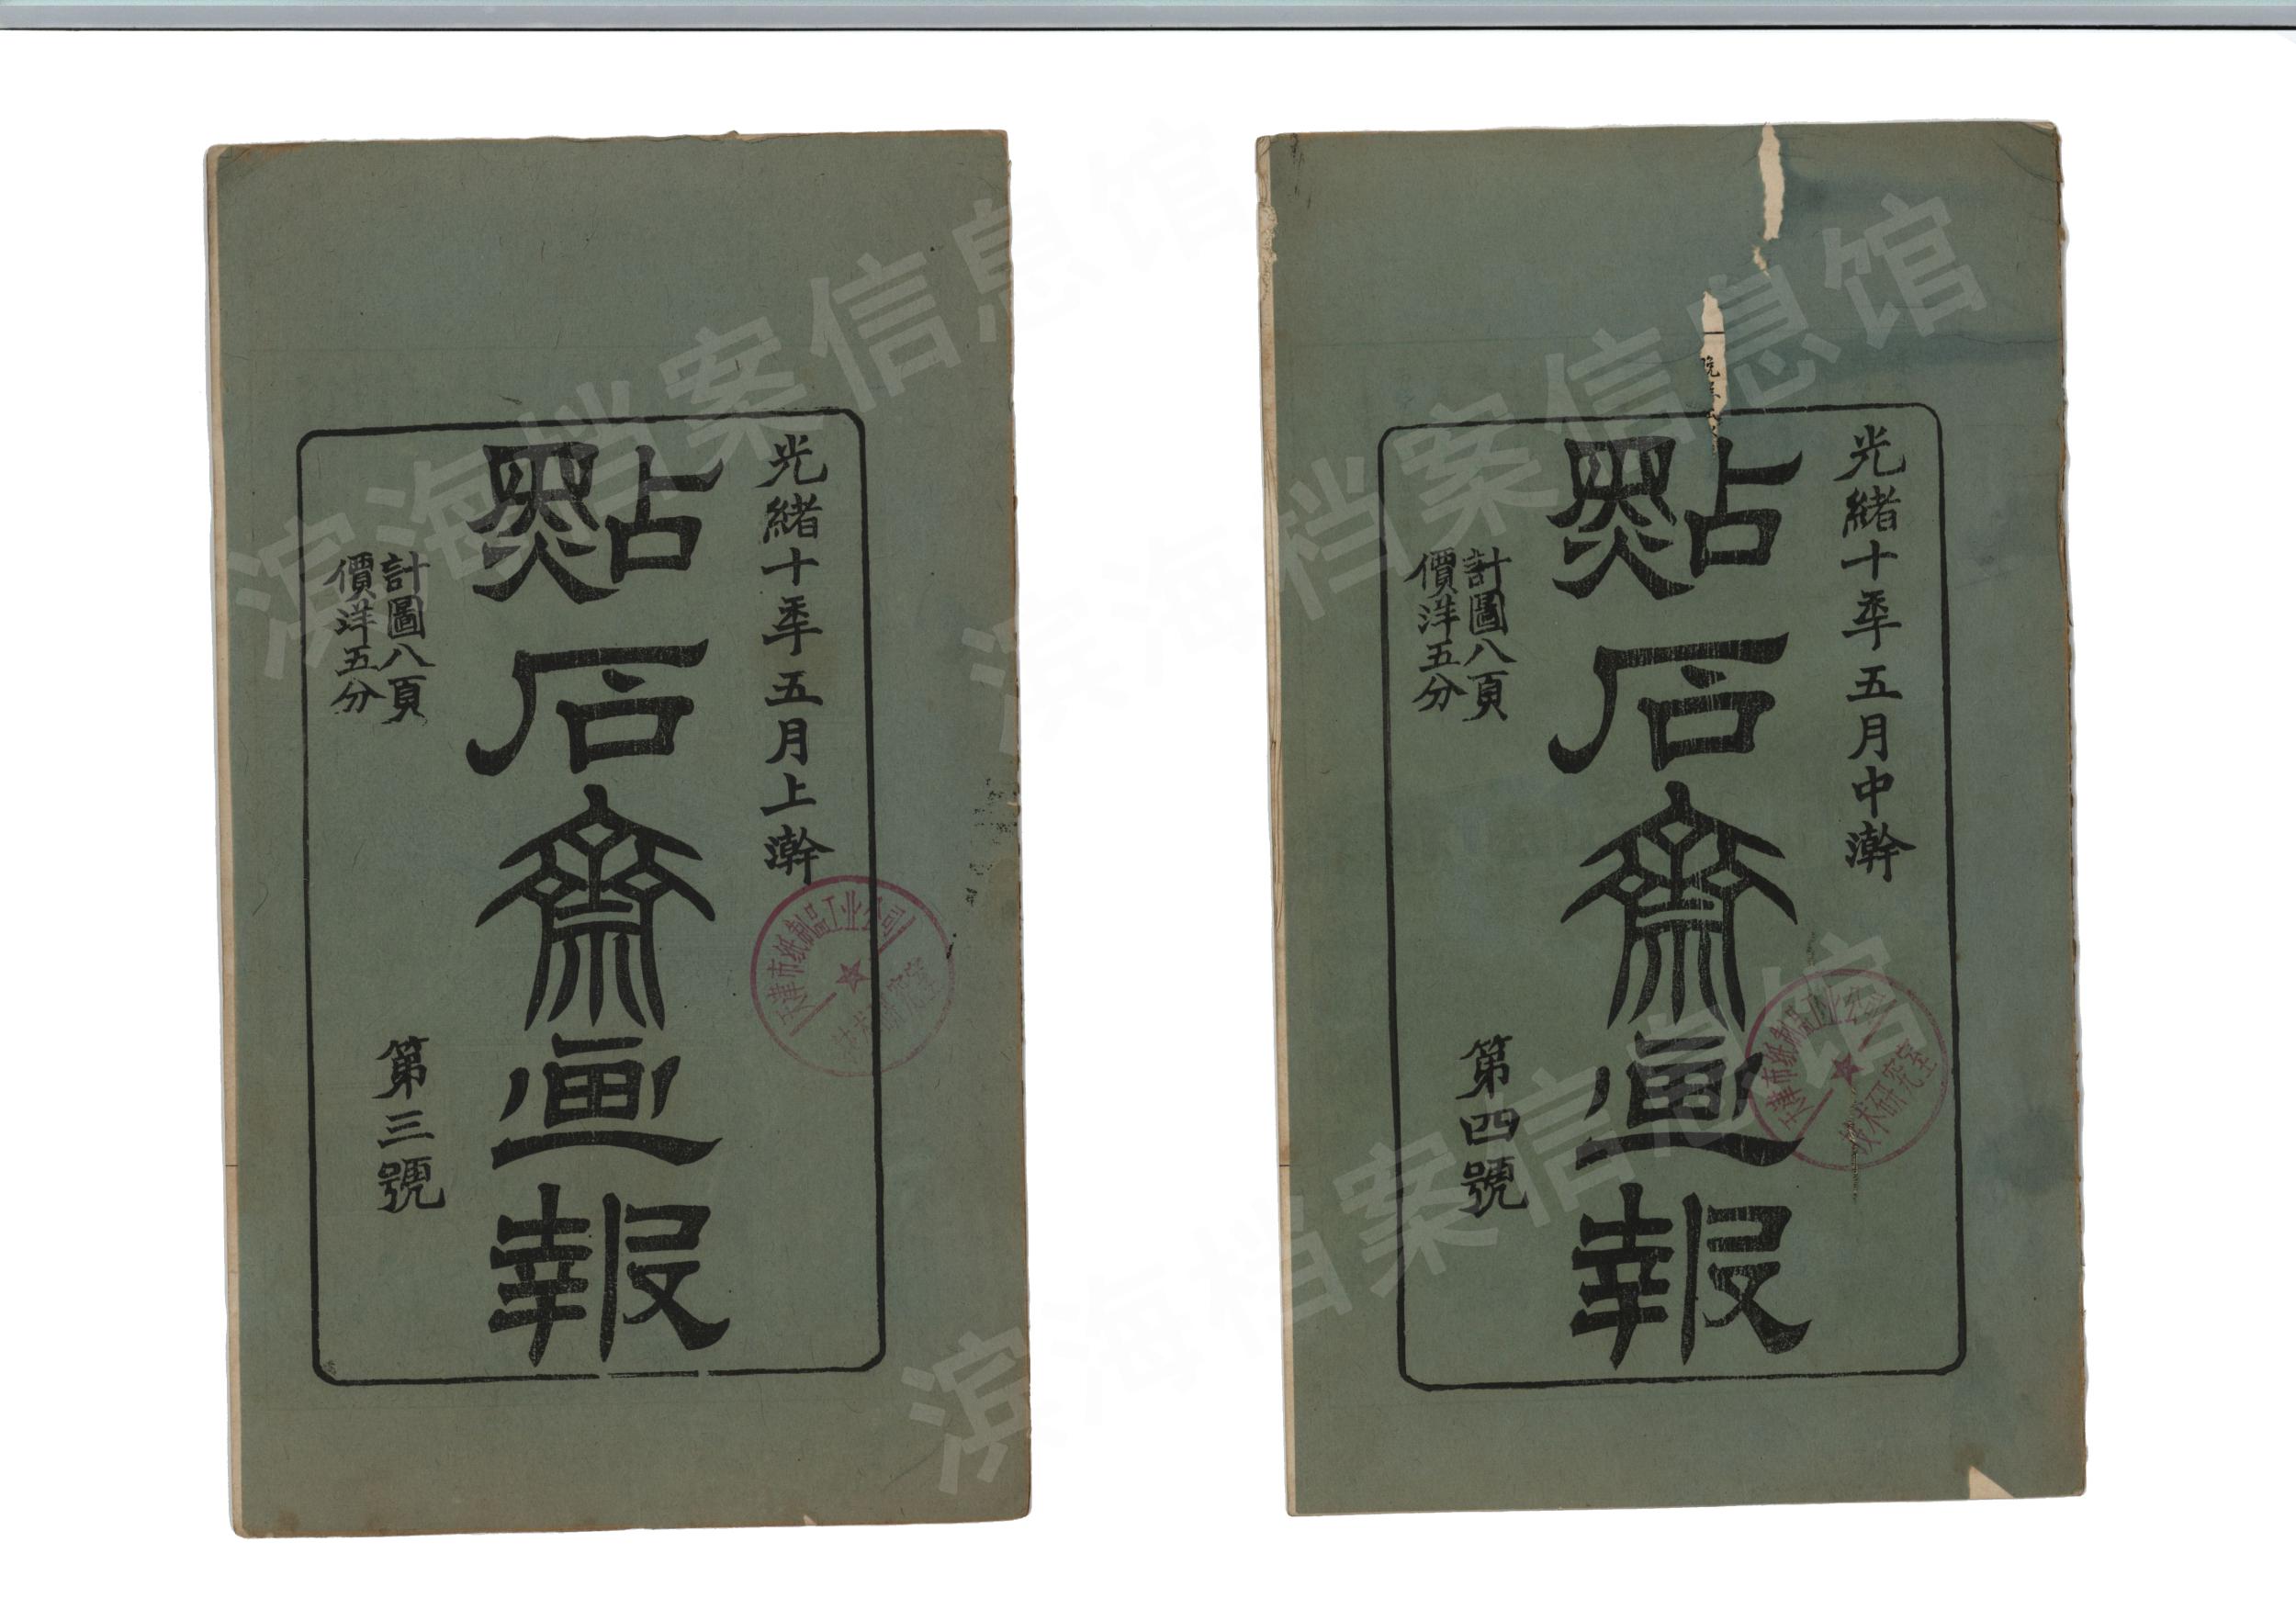 光緒十年五月上澣
點石齋畫報
計圖八頁
價洋五分
第三號
天津市纸制品工业公司
技术研究室
光緒十年五月中澣
點石齋畫報
計圖八頁
價洋五分
第四號
天津市纸制品工业公司
技术研究室
滨海档案信息馆
滨海档案信息馆
滨海档案信息馆